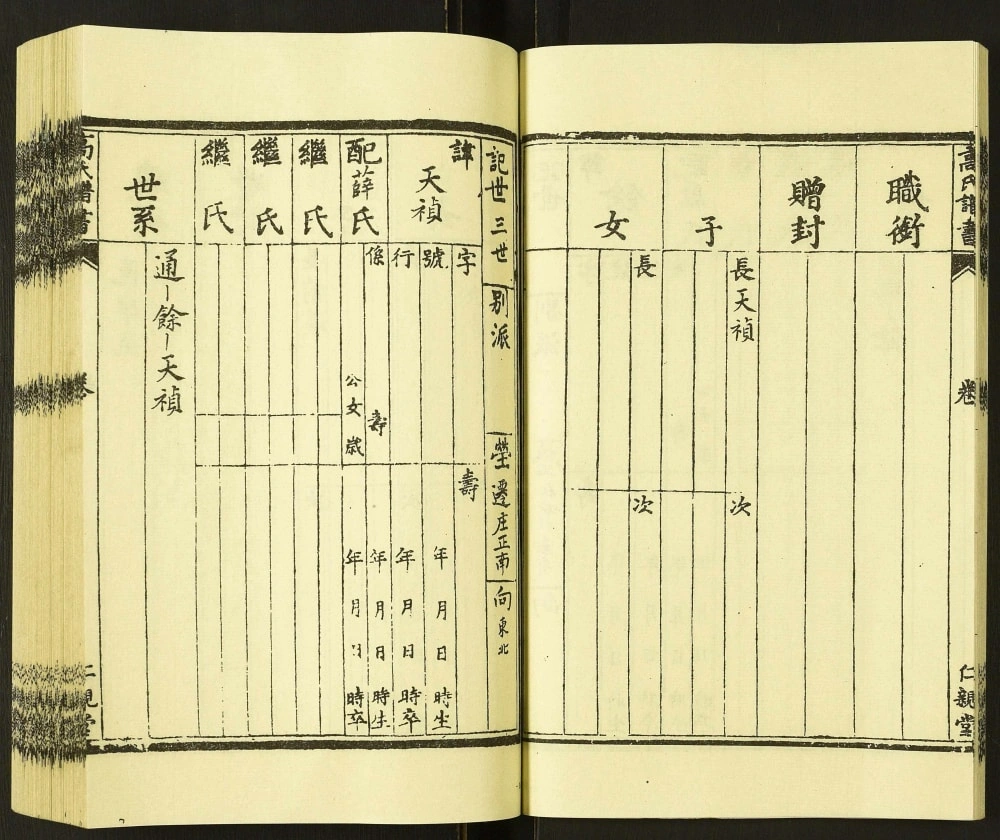 高氏譜書
卷
仁親堂
職銜
贈封
子
長天禎
次
女
長
次
記世 三世
別派
塋 遷庄正南
向 東北
諱 天禎
字
壽
號
年月日時生
行
年月日時卒
配薛氏
係
壽
年月日時生
公女歲
年月日時卒
繼氏
繼氏
繼氏
世系
通-餘-天禎
高氏譜書
卷
仁親堂